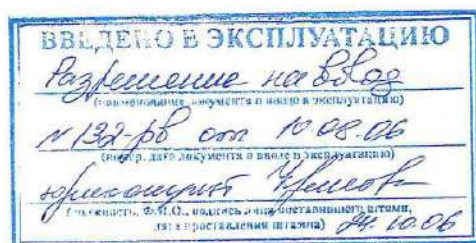 ВВЕДЕНО В ЭКСПЛУАТАЦИЮ
Разрешение на ввод
(наименование документа о вводе в эксплуатацию)
№ 132-рв от 10.08.06
(номер, дата документа о вводе в эксплуатацию)
юрисконсульт
(должность, Ф.И.О., подпись лица поставившего штамп,
дата проставления штампа) 24.10.06